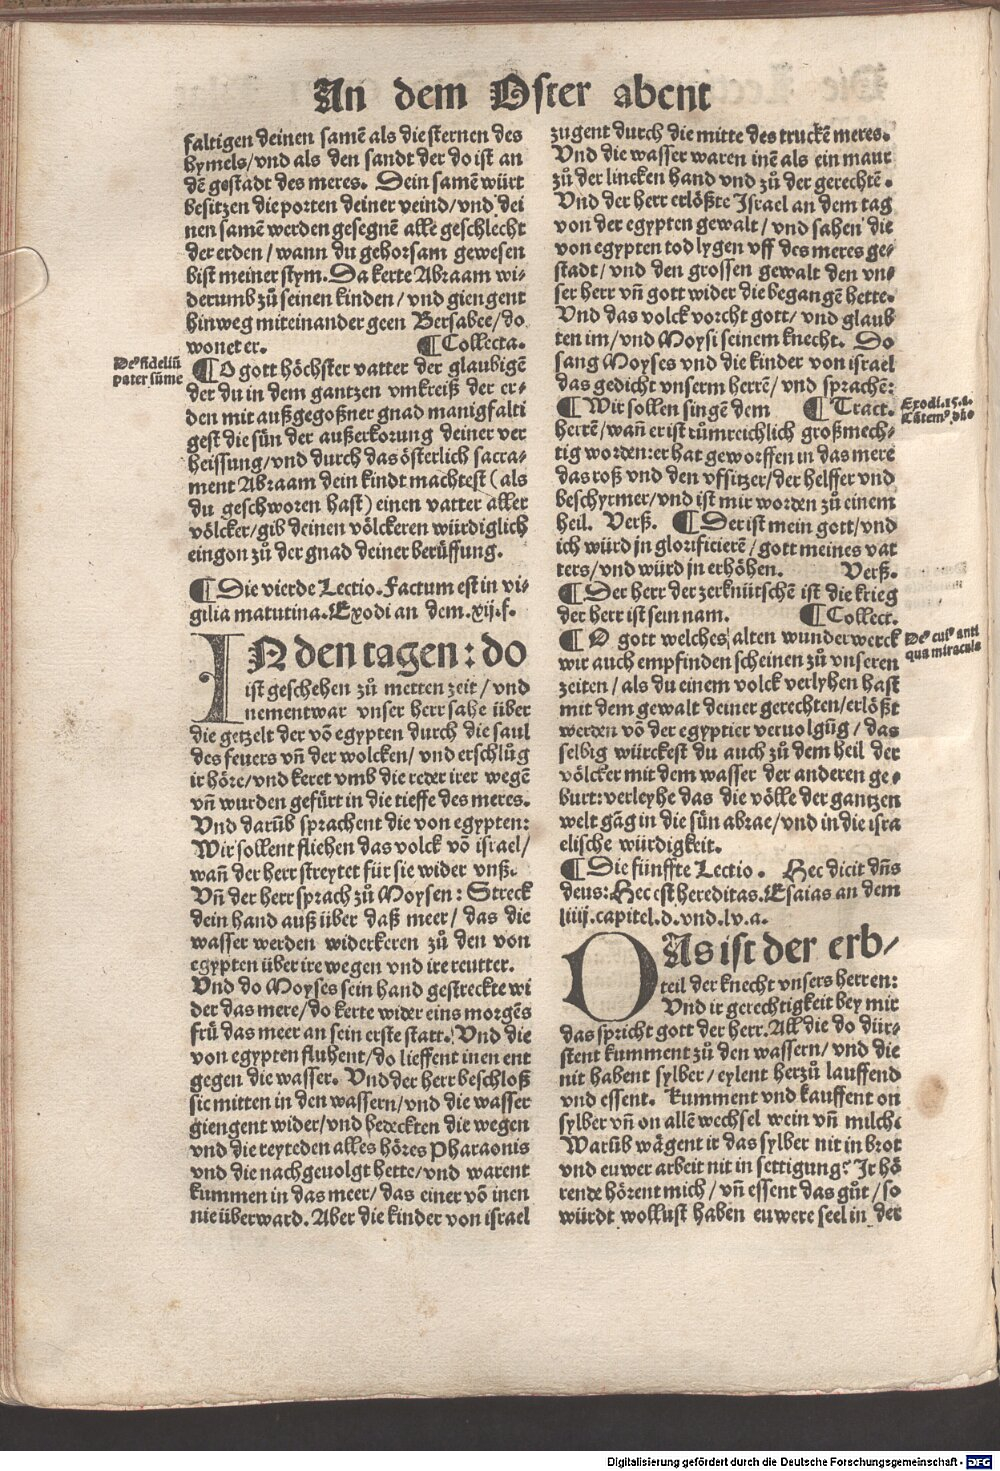 An dem Oster abent
faltigen deinen samē als die sternen des
hymels/vnd als den sandt der do ist an
dē gestadt des meres. Dein samē würt
besitzen die porten deiner veind/vnd dei
nen samē werden gesegnē alle geschlecht
der erden/wann du gehorsam gewesen
bist meiner stym. Da kerte Abraam wi-
derumb zů seinen kinden/vnd giengent
hinweg miteinander geen Bersabee/do
wonet er. ¶Collecta.
De⁹ fideliū
pater sūme
¶O gott höchster vatter der glaubigē
der du in dem gantzen vmkreiß der er-
den mit außgegoßner gnad manigfalti
gest die sün der außerkorung deiner ver
heissung/vnd durch das österlich sacra-
ment Abraam dein kindt machtest (als
du geschworen hast) einen vatter aller
völcker/gib deinen völckeren würdiglich
eingon zů der gnad deiner berüffung.
¶Die vierde Lectio. Factum est in vi-
gilia matutina. Exodi an dem .xij.f.
IN den tagen: do
ist geschehen zů metten zeit/vnd
nementwar vnser herr sahe über
die getzelt der vō egypten durch die saul
des feuers vñ der wolcken/vnd erschlůg
ir höre/vnd keret vmb die reder irer wegē
vñ wurden gefürt in die tieffe des meres.
Vnd darūb sprachent die von egypten:
Wir sollent fliehen das volck vō israel/
wañ der herr streytet für sie wider vnß.
Vñ der herr sprach zů Moysen: Streck
dein hand auß über daß meer/das die
wasser werden widerkeren zů den von
egypten über ire wegen vnd ire reutter.
Vnd do Moyses sein hand gestreckte wi
der das mere/do kerte wider eins morgēs
frü das meer an sein erste statt. Vnd die
von egypten fluhent/do lieffent inen ent
gegen die wasser. Vnd der herr beschloß
sie mitten in den wassern/vnd die wasser
giengent wider/vnd bedeckten die wegen
vnd die reyteden alles höres Pharaonis
vnd die nachgeuolgt hette/vnd warent
kummen in das meer/das einer vō inen
nie überward. Aber die kinder von israel
zugent durch die mitte des truckē meres.
Vnd die wasser waren inē als ein maur
zů der lincken hand vnd zů der gerechtē.
Vnd der herr erlößte Israel an dem tag
von der egypten gewalt/vnd sahen die
von egypten tod lygen vff des meres ge-
stadt/vnd den grossen gewalt den vn-
ser herr vñ gott wider die begangē hette.
Vnd das volck vorcht gott/vnd glaub
ten im/vnd Moysi seinem knecht. Do
sang Moyses vnd die kinder von israel
das gedicht vnserm herrē/vnd sprachē:
¶Wir sollen singē dem ¶Tract.
Exodi.15.a.
Cātem⁹ dño
herrē/wañ er ist růmreichlich großmech-
tig worden: er hat geworffen in das mere
das roß vnd den vfsitzer/der helffer vnd
beschyrmer/vnd ist mir worden zů einem
heil. Verß. ¶Der ist mein gott/vnd
ich würd jn glorificierē/gott meines vat
ters/vnd würd jn erhöhen. Verß.
¶Der herr der zerknütschē ist die krieg
der herr ist sein nam. ¶Collect.
De⁹ cui⁹ anti
qua miracula
¶O gott welches alten wunderwerck
wir auch empfinden scheinen zů vnseren
zeiten/als du einem volck verlyhen hast
mit dem gewalt deiner gerechten/erlößt
werden vō der egyptier veruolgūg/das
selbig würckest du auch zů dem heil der
völcker mit dem wasser der anderen ge-
burt: verleyhe das die völle der gantzen
welt gāg in die sün abrae/vnd in die isra
elische würdigkeit.
¶Die fünffte Lectio. Hec dicit dñs
deus: Hec est hereditas. Esaias an dem
liiij.capitel.d.vnd.lv.a.
DAs ist der erb/
teil der knecht vnsers herren:
Vnd ir gerechtigkeit bey mir
das spricht gott der herr. All die do dür-
stent kumment zů den wassern/vnd die
nit habent sylber/eylent herzů lauffend
vnd essent. Kumment vnd kauffent on
sylber vñ on allē wechsel wein vñ milch.
Warūb wägent ir das sylber nit in brot
vnd euwer arbeit nit in settigung? Ir hö
rende hörent mich/vñ essent das gůt/so
würdt wollust haben euwere seel in der
Digitalisierung gefördert durch die Deutsche Forschungsgemeinschaft - DFG